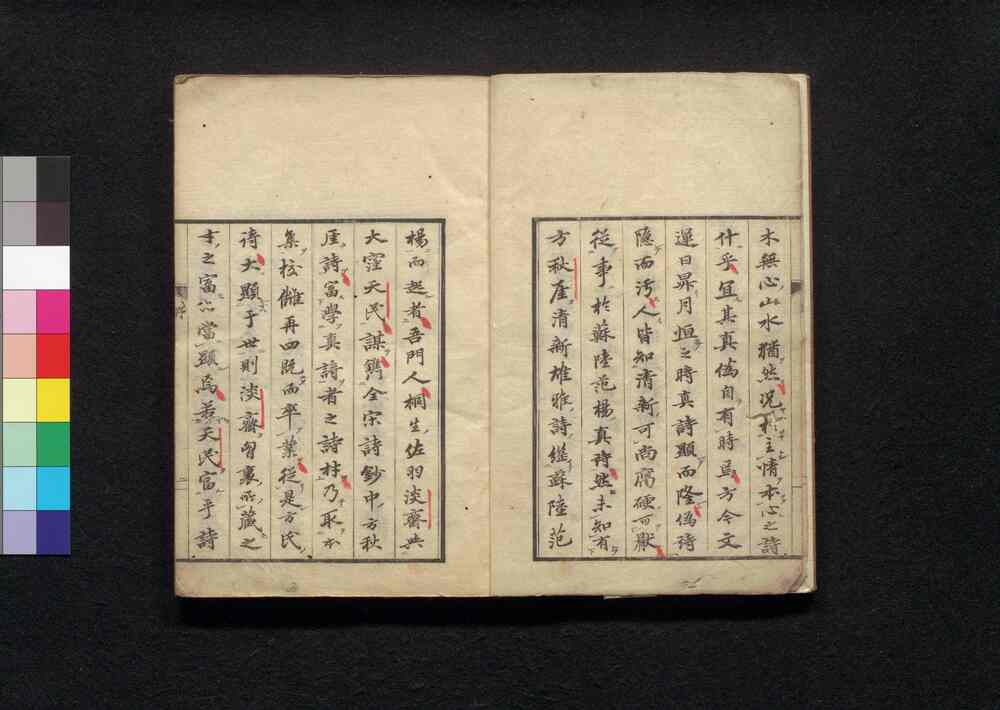 木無心山水猶然况於主情本心之詩
什乎宜其真偽自有時焉方今文
運日昇月恒之時真詩顕而隆偽詩
隠而汚人皆知清新可尚腐硬可厭
從事於蘇陸范楊真詩然未知有
方秋厓清新雄雅詩繼蘇陸范
楊而起者吾門人桐生佐羽淡齋与
大窪天民謀鐫全宋詩鈔中方秋
厓詩富學真詩者之詩材乃取本
集校讎再四既而卒業從是方氏
詩大顕于世則淡齋匈裏所藏之
才之富亦當顕焉若天民富乎詩
序